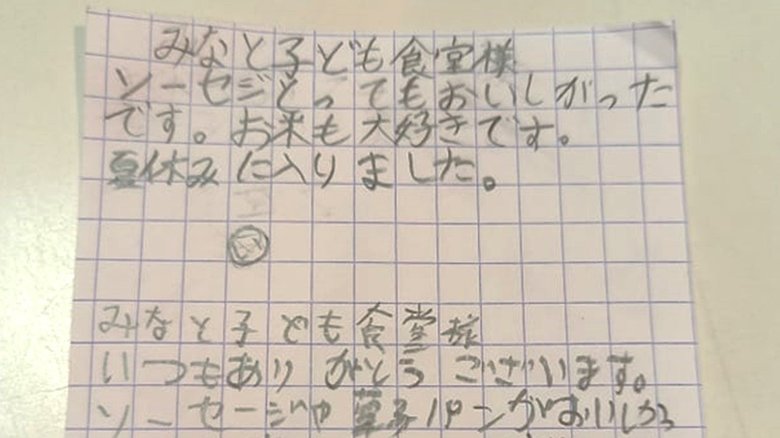 みなと子ども食堂様
ソーセジとってもおいしがった
です。お米も大好きです。
夏休みに入りました。
みなと子ども食堂様
いつもありがとうございます。
ソーセージや菓子パンがおいしか